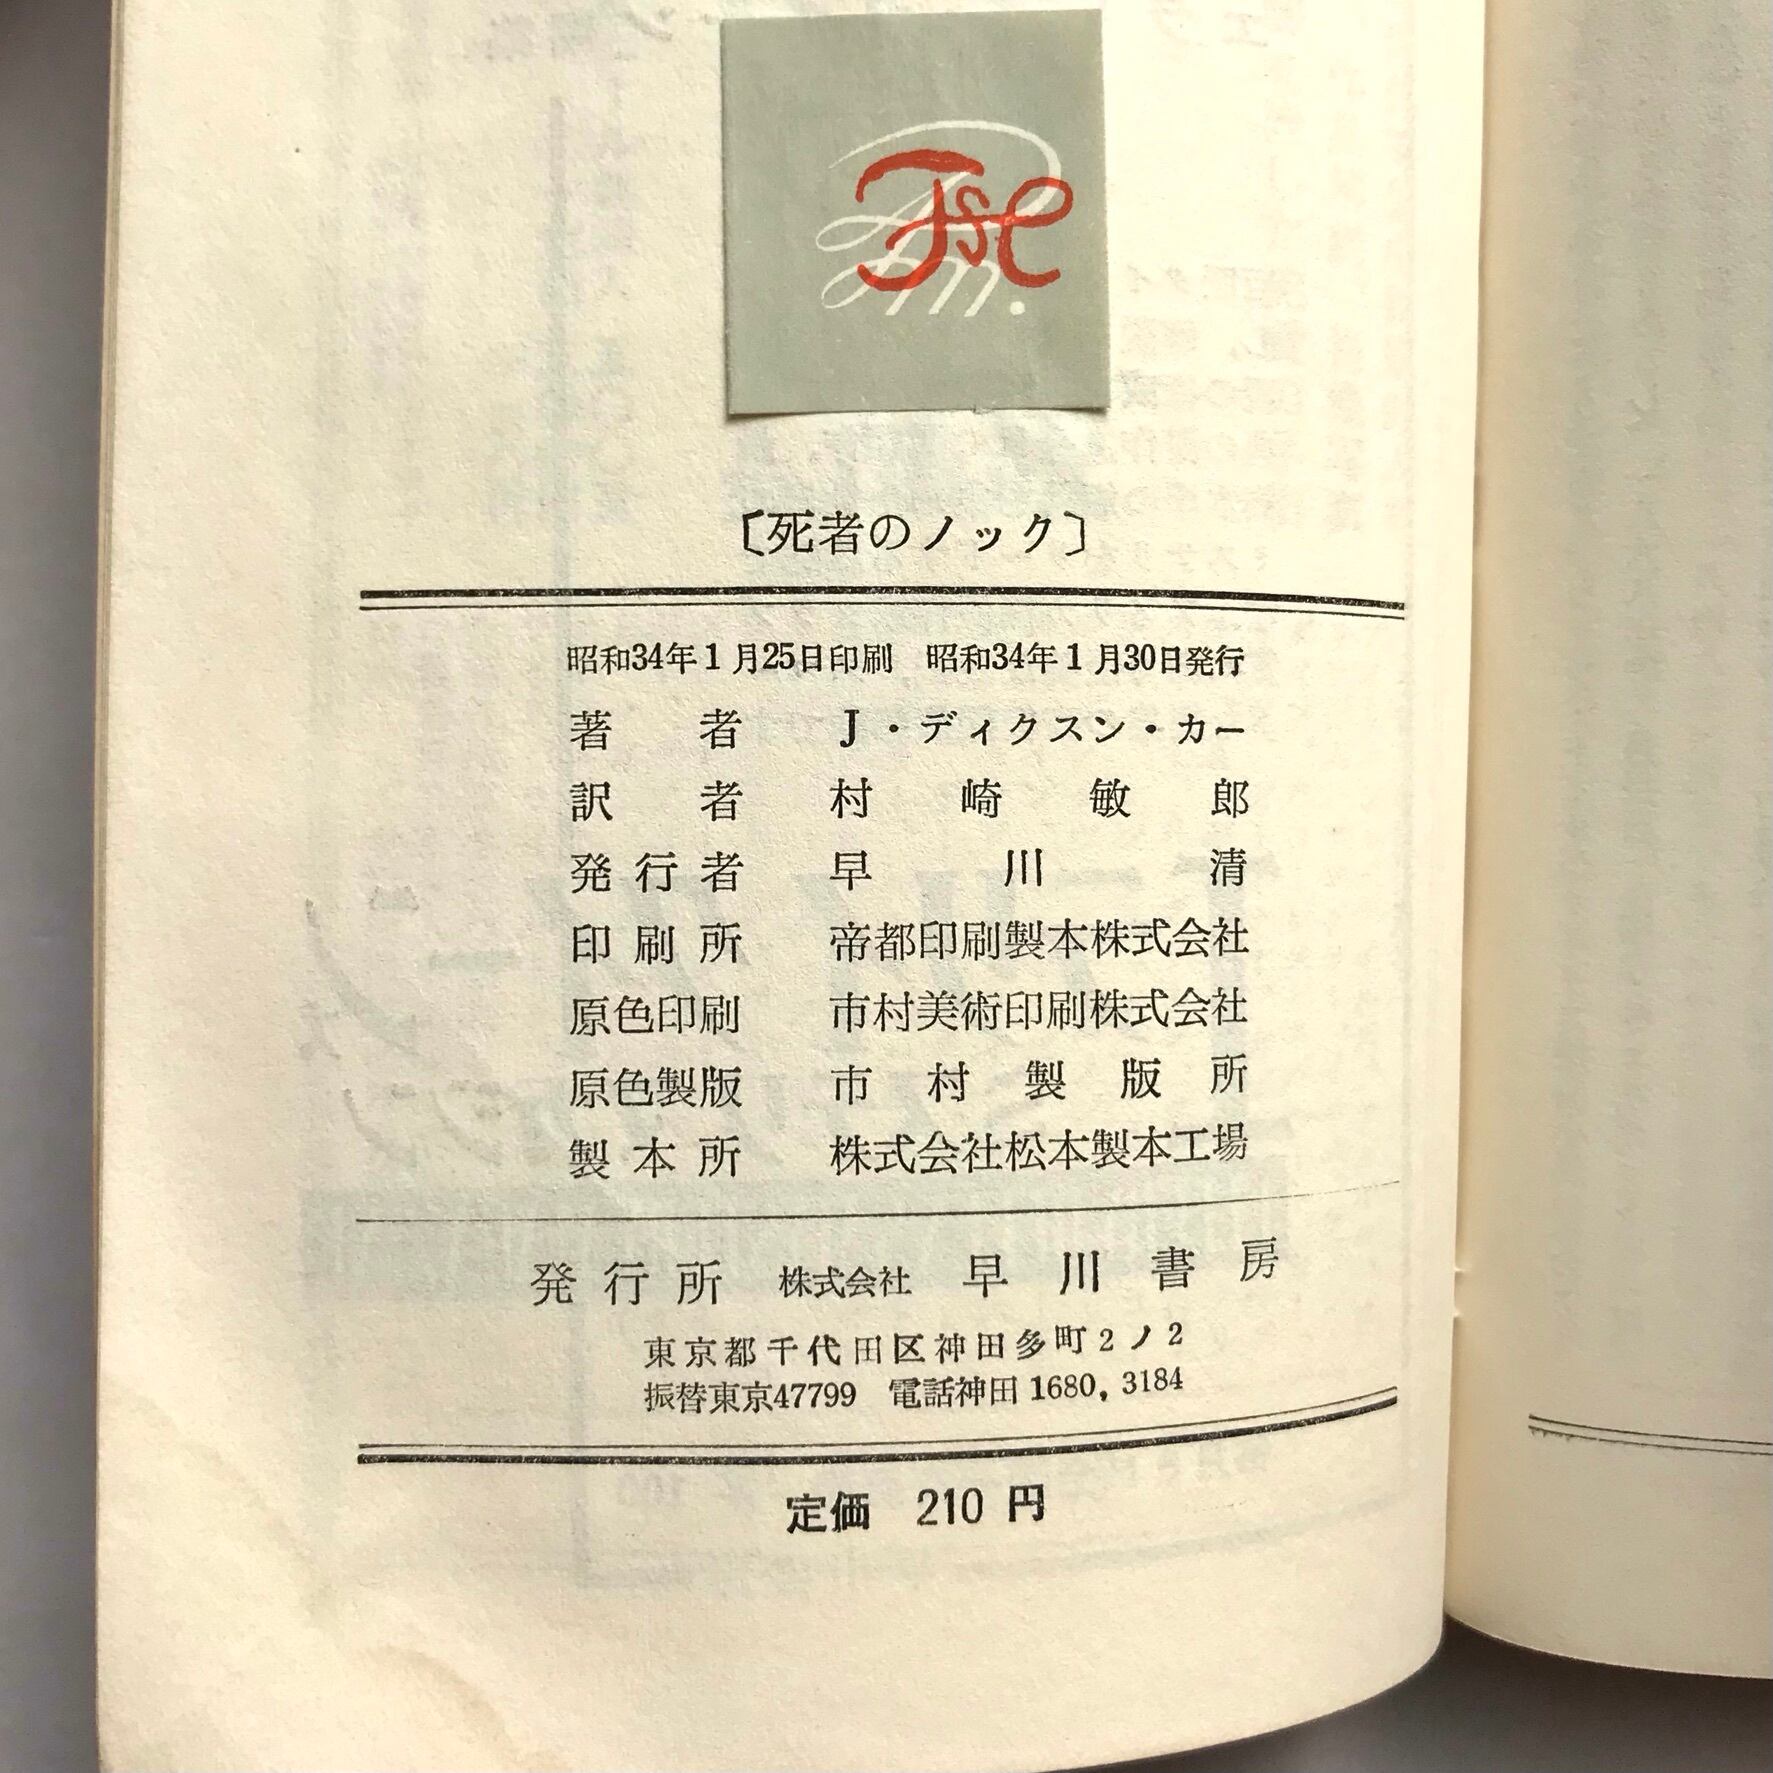 〔死者のノック〕
昭和34年1月25日印刷　昭和34年1月30日発行
著者　J・ディクスン・カー
訳者　村崎敏郎
発行者　早川清
印刷所　帝都印刷製本株式会社
原色印刷　市村美術印刷株式会社
原色製版　市村製版所
製本所　株式会社松本製本工場
発行所　株式会社　早川書房
東京都千代田区神田多町2ノ2
振替東京47799　電話神田1680，3184
定価　210円